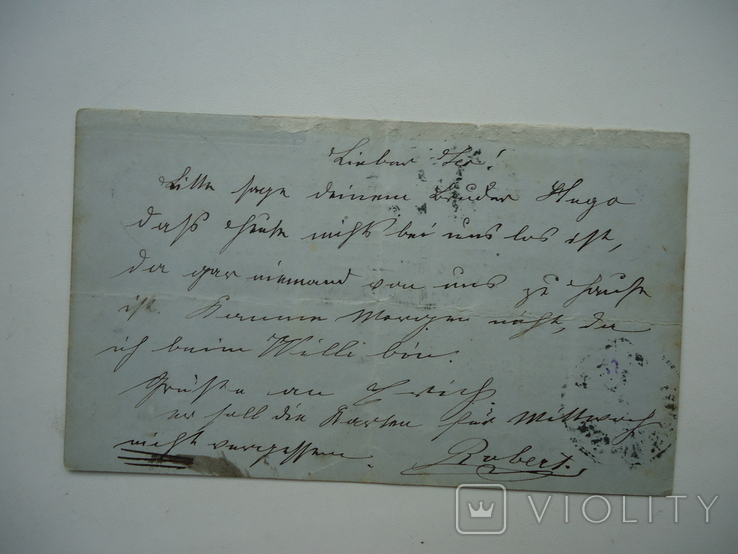 Lieber Leo!
Bitte sage deinem Bruder Hugo
daß heute nichts bei uns los ist,
da gar niemand von uns zu Hause
ist. Komme Morgen nicht, da
ich beim Willi bin.
Grüße an Erich
er soll die Karten für Mittwoch
nicht vergessen.
Robert.
VIOLITY